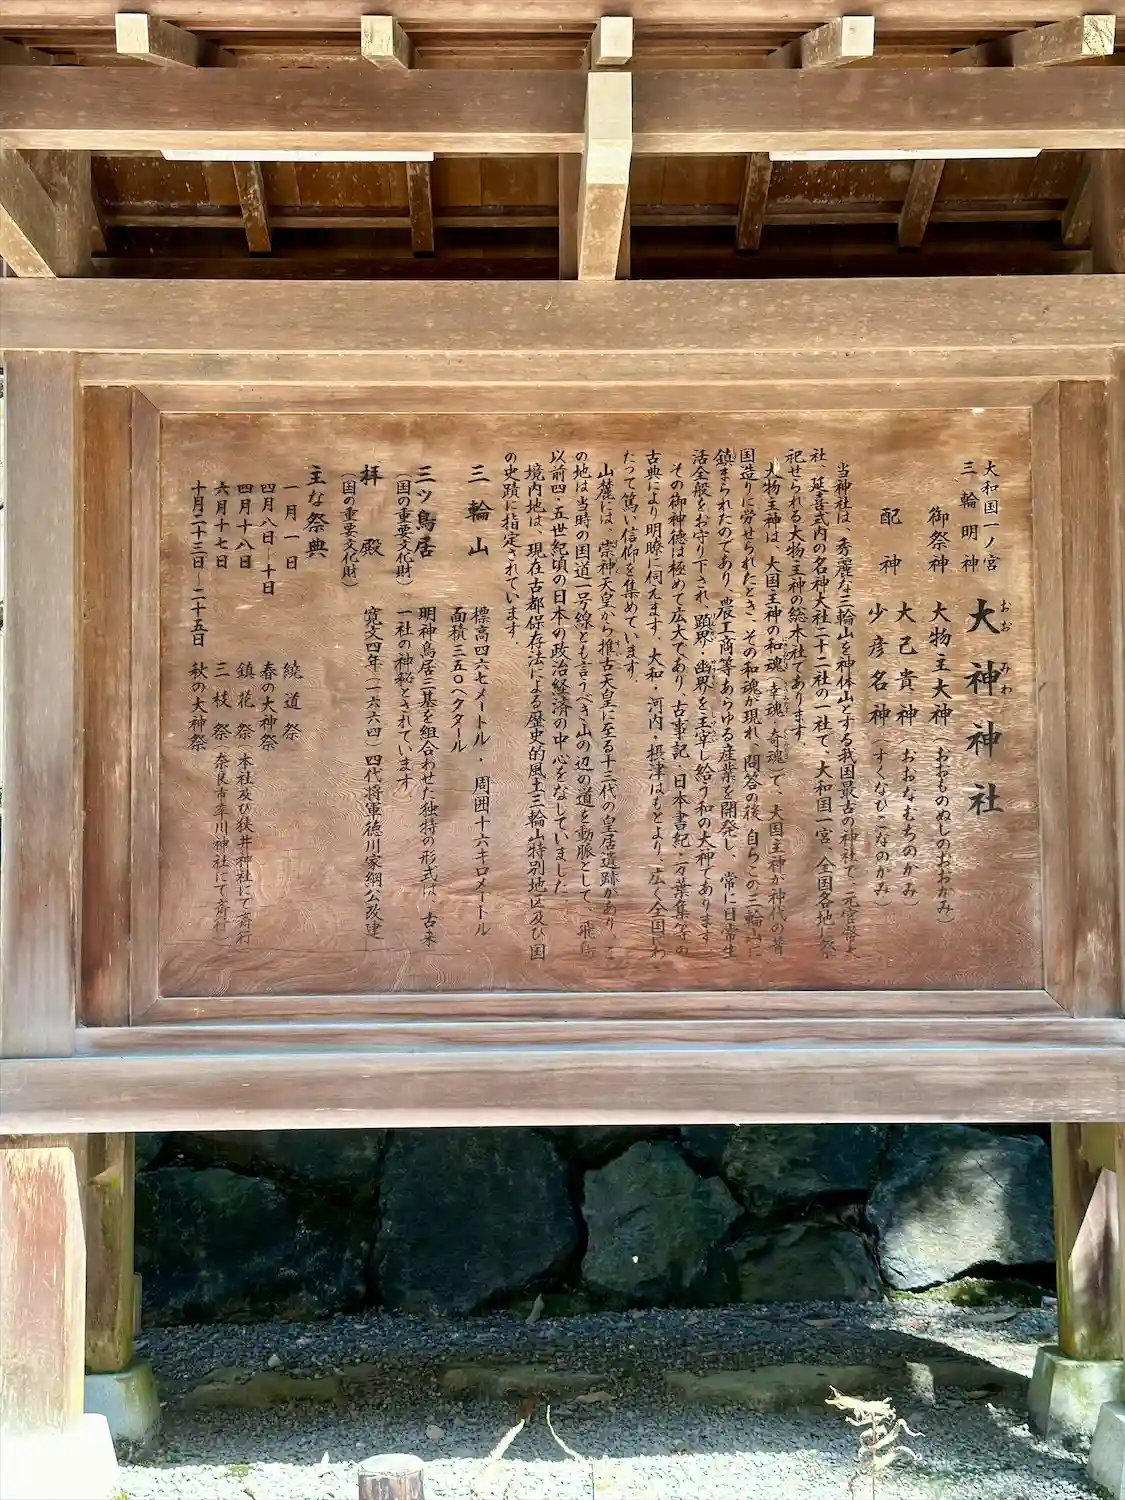 大和国一ノ宮
三輪明神
大神神社
おおみわ
御祭神 大物主大神(おおものぬしのおおかみ)
大己貴神(おおなむちのかみ)
配神 少彦名神(すくなひこなのかみ)
当神社は、秀麗な三輪山を神体山とする我国最古の神社で、元官幣大
社、延喜式内の名神大社二十二社の一社で、大和国一宮、全国各地に祭
祀せられる大物主神の総本社であります。
大物主神は、大国主神の和魂(幸魂・奇魂)で、大国主神が神代の昔、
国造りに労せられたとき、その和魂が現れ、問答の後、自らこの三輪山に
鎮まられたのであり、農工商等あらゆる産業を開発し、常に日常生
活全般をお守り下され、顕界・幽界を主宰し給う和の大神であります
その御神徳は極めて広大であり、古事記・日本書紀・万葉集等の
古典により明瞭に伺えます。大和・河内・摂津はもとより、広く全国にわ
たって篤い信仰を集めています。
山麓には、崇神天皇から推古天皇に至る十三代の皇居遺跡があり、こ
の地は当時の国道一号線とも言うべき山の辺の道を動脈として、飛鳥
以前四・五世紀頃の日本の政治経済の中心をなしていました。
境内地は、現在古都保存法による歴史的風土三輪山特別地区及び国
の史蹟に指定されています。
三輪山 標高四六七メートル・周囲十六キロメートル
面積三五〇ヘクタール
三ツ鳥居 明神鳥居三基を組合わせた独特の形式は、古来
(国の重要文化財) 一社の神秘とされています
拝殿 寛文四年(一六六四)四代将軍徳川家綱公改建
(国の重要文化財)
主な祭典
一月一日 繞道祭
四月八日〜十日 春の大神祭
四月十八日 鎮花祭(本社及び狭井神社にて斎行)
六月十七日 三枝祭(奈良市率川神社にて斎行)
十月二十三日〜二十五日 秋の大神祭